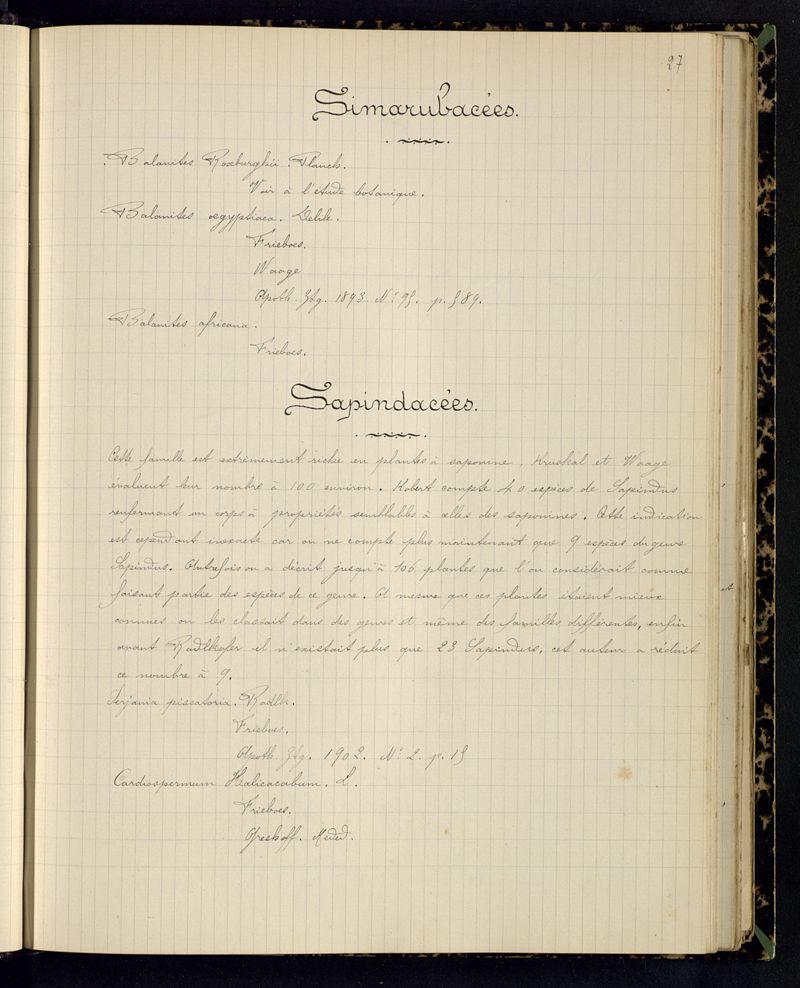 27
Simarubacées.
Balanites Roxburghii. Planch.
Voir à l'étude botanique.
Balanites œgyptiaca. Delile.
Frieboes.
Waage
Apoth. Ztg. 1893. N° 95. p. 589.
Balanites africana.
Frieboes.
Sapindacées.
Cette famille est extrêmement riche en plantes à saponine, Kruskal et Waage
évaluent leur nombre à 100 environ. Kobert compte 40 espèces de Sapindus
renfermant un corps à propriétés semblables à celles des saponines. Cette indication
est cependant inexacte car on ne compte plus maintenant que 9 espèces du genre
Sapindus. Autrefois on a décrit jusqu'à 106 plantes que l'on considérait comme
faisant partie des espèces de ce genre. A mesure que ces plantes étaient mieux
connues on les classait dans des genres et même des familles différentes, enfin
avant Radlkofer il n'existait plus que 23 Sapindus, cet auteur a réduit
ce nombre à 9.
Serjania piscatoria. Radlk.
Frieboes.
Apoth. Ztg. 1902. N° 2. p. 15
Cardiospermum Halicacabum. L.
Frieboes.
Greshoff. Meded.